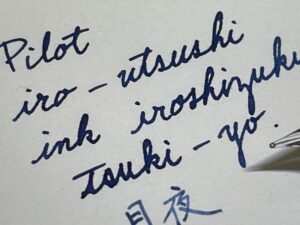 Pilot
iro-utsushi
ink iroshizuku
tsuki-yo.
月夜